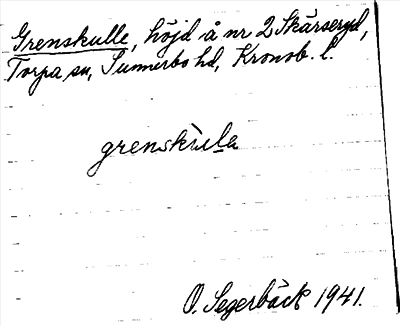 Grenskulle, höjd å nr 2 Skärseryd,
Torpa sn, Sunnerbo hd, Kronob. l.
grenskùla
O. Segerbäck 1941.